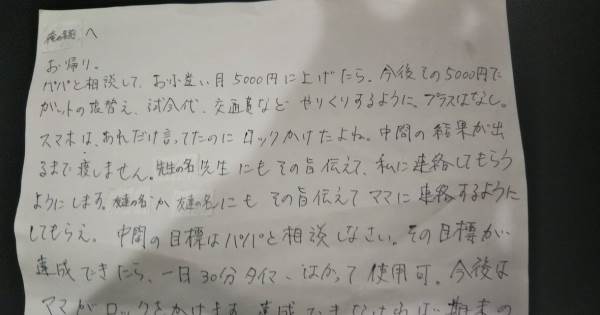 俺の名前 へ
お帰り。
パパと相談して、お小遣い月5000円に上げたら、今後その5000円で
ガットの張替え、試合代、交通費など やりくりするように。プラスはなし。
スマホは、あれだけ言ってたのに ロックかけたよね。中間の結果が出
るまで渡しません。先生の名 先生 にも その旨 伝えて、私に連絡してもらう
ようにします。友達の名 か 友達の名 にも その旨 伝えて ママに 連絡するように
してもらえ。 中間の目標は パパと相談しなさい。その目標が
達成できたら、一日30分タイマーはかって 使用可。今後は
ママがロックをかけます。達成できなければ 期末の